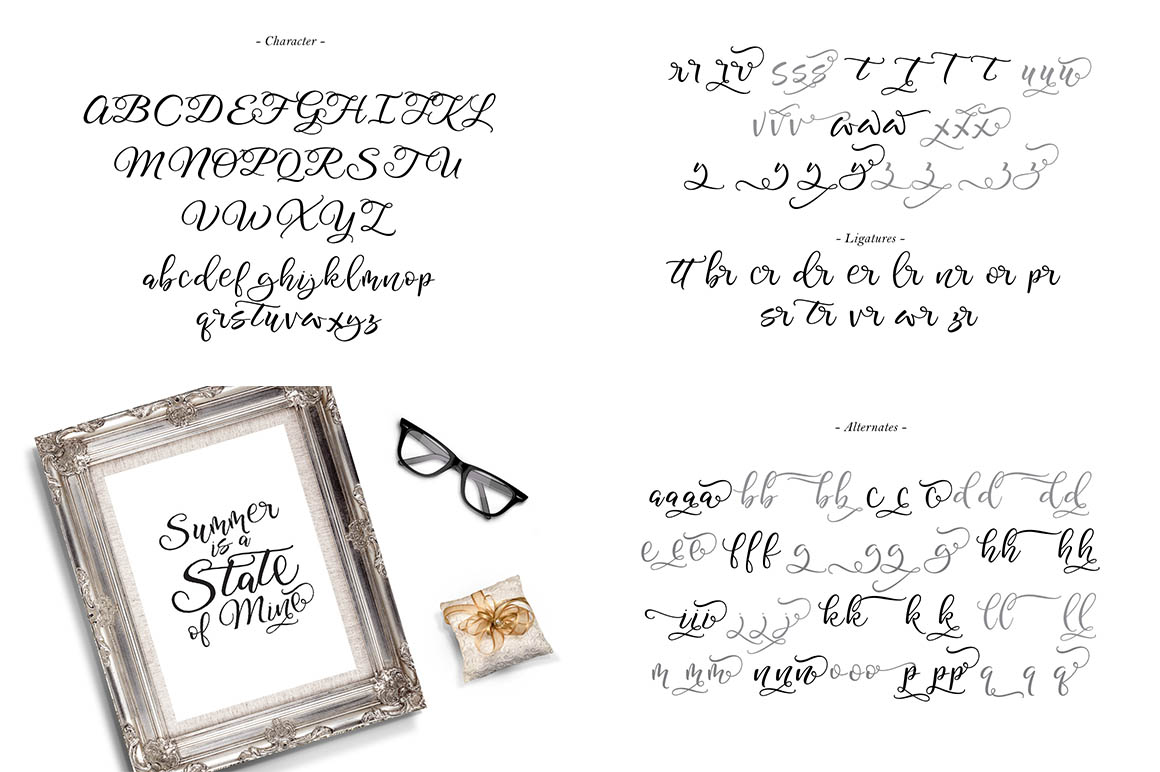 - Character -
ABCDEFGHIJKL
MNOPQRSTU
VWXYZ
abcdefghijklmnop
qrstuvwxyz
Summer
is a
State
of Mine
rr rr sss t t t t uuu
vvv www xxx
y y y y z z z z
- Ligatures -
tt br cr dr er lr nr or pr
sr tr vr wr zr
- Alternates -
aaaa bb bb c c c dd dd
eeee fff g gg g hh hh
iii jjj kk k k ll ll
m mm nnn ooo p pp q q q